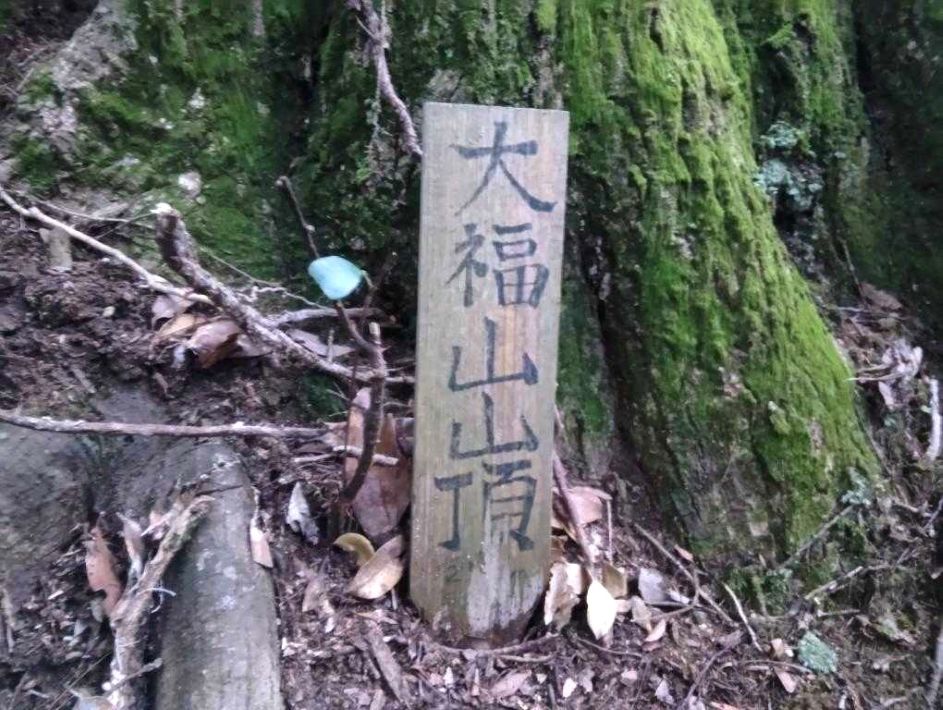 大福山山頂